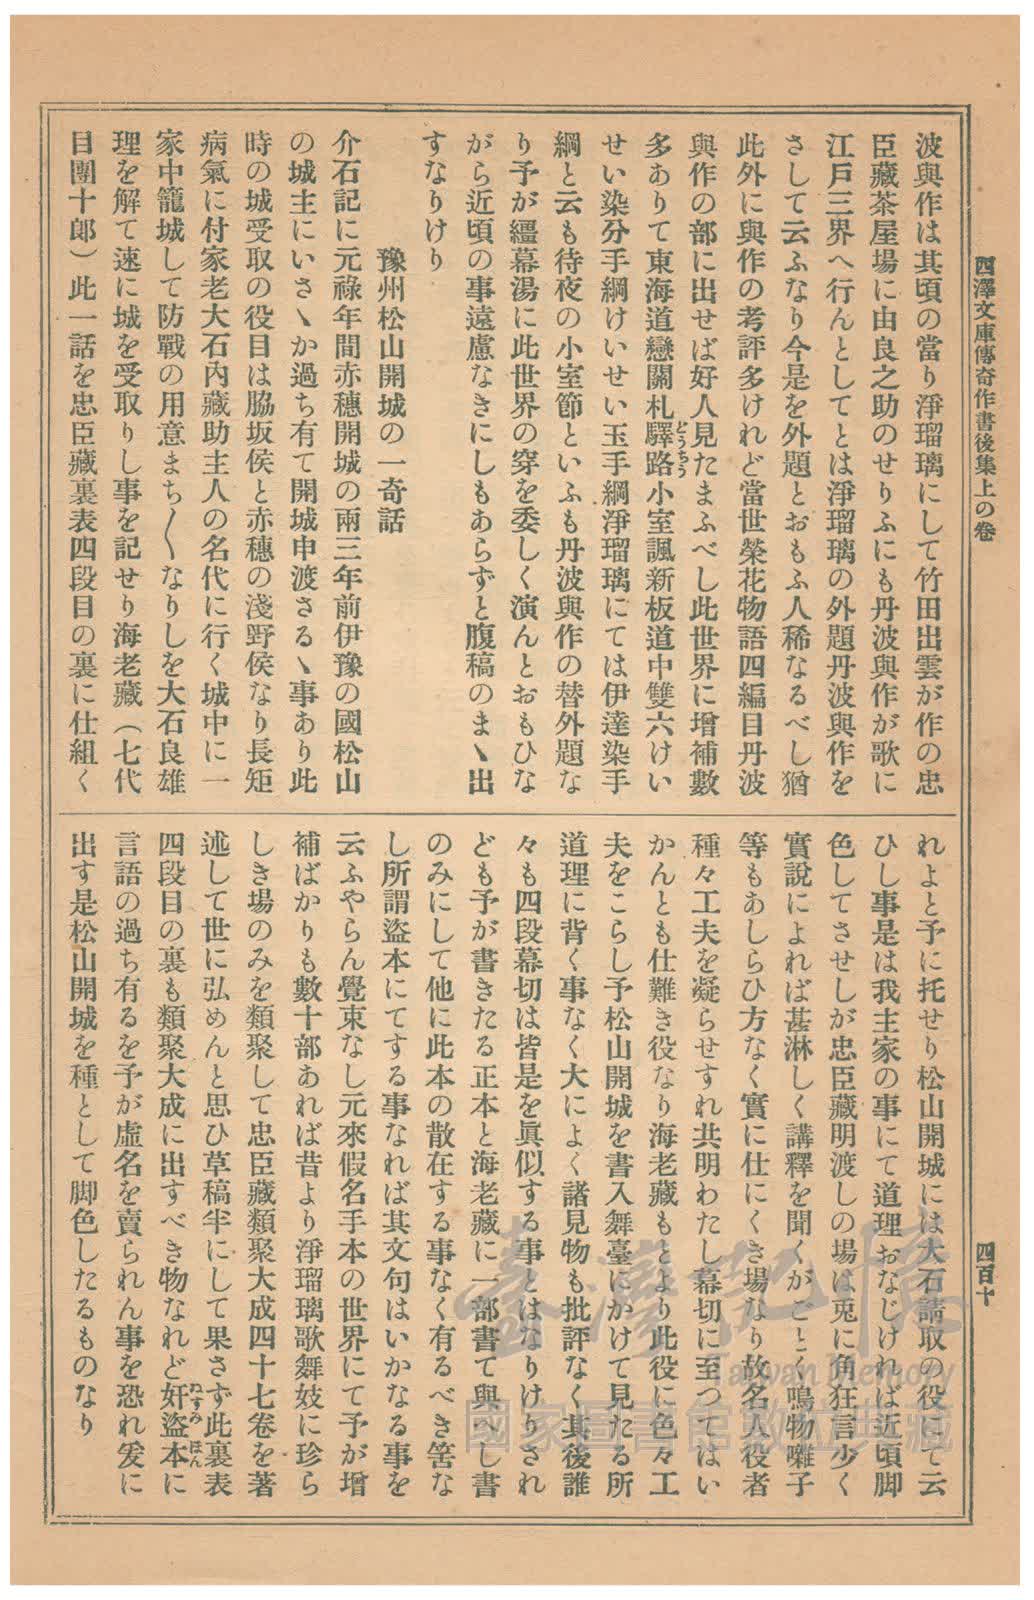 四澤文庫傳奇作書後集上の卷
四百十
波與作は其頃の當り淨瑠璃にして竹田出雲が作の忠
臣藏茶屋場に由良之助のせりふにも丹波與作が歌に
江戸三界へ行んとしてとは淨瑠璃の外題丹波與作を
さして云ふなり今是を外題とおもふ人稀なるべし猶
此外に與作の考評多けれど當世榮花物語四編目丹波
與作の部に出せば好人見たまふべし此世界に增補數
多ありて東海道戀關札驛路小室諷新板道中雙六けい
どうちう
せい染分手綱けいせい玉手綱淨瑠璃にては伊達染手
綱と云も待夜の小室節といふも丹波與作の替外題な
り予が纒幕湯に此世界の穿を委しく演んとおもひな
がら近頃の事遠慮なきにしもあらずと腹稿のまゝ出
すなりけり
豫州松山開城の一奇話
介石記に元祿年間赤穗開城の兩三年前伊豫の國松山
の城主にいさゝか過ち有て開城申渡さるゝ事あり此
時の城受取の役目は脇坂侯と赤穗の淺野侯なり長矩
病氣に付家老大石內藏助主人の名代に行く城中に一
家中籠城して防戰の用意まち〱なりしを大石良雄
理を解て速に城を受取りし事を記せり海老藏（七代
目團十郎）此一話を忠臣藏裏表四段目の裏に仕組く
れよと予に托せり松山開城には大石請取の役にて云
ひし事是は我主家の事にて道理おなじければ近頃脚
色してさせしが忠臣藏明渡しの場は兎に角狂言少く
實說によれば甚淋しく講釋を聞くがごとく鳴物囃子
等もあしらひ方なく實に仕にくき場なり故名人役者
種々工夫を凝らせすれ共明わたし幕切に至つてはい
かんとも仕難き役なり海老藏もとより此役に色々工
夫をこらし予松山開城を書入舞臺にかけて見たる所
道理に背く事なく大によく諸見物も批評なく其後誰
々も四段幕切は皆是を眞似する事とはなりけりされ
ども予が書きたる正本と海老藏に一部書て與へし書
のみにして他に此本の散在する事なく有るべき筈な
し所謂盜本にてする事なれば其文句はいかなる事を
云ふやらん覺束なし元來假名手本の世界にて予が增
補ばかりも數十部あれば昔より淨瑠璃歌舞妓に珍ら
しき場のみを類聚して忠臣藏類聚大成四十七卷を著
述して世に弘めんと思ひ草稿半にして果さず此裏表
四段目の裏も類聚大成に出すべき物なれど奸盜本に
ぬすみほん
言語の過ち有るを予が虛名を賣られん事を恐れ爰に
出す是松山開城を種として脚色したるものなり
臺灣記憶
Taiwan Memory
國家圖書館數位典藏